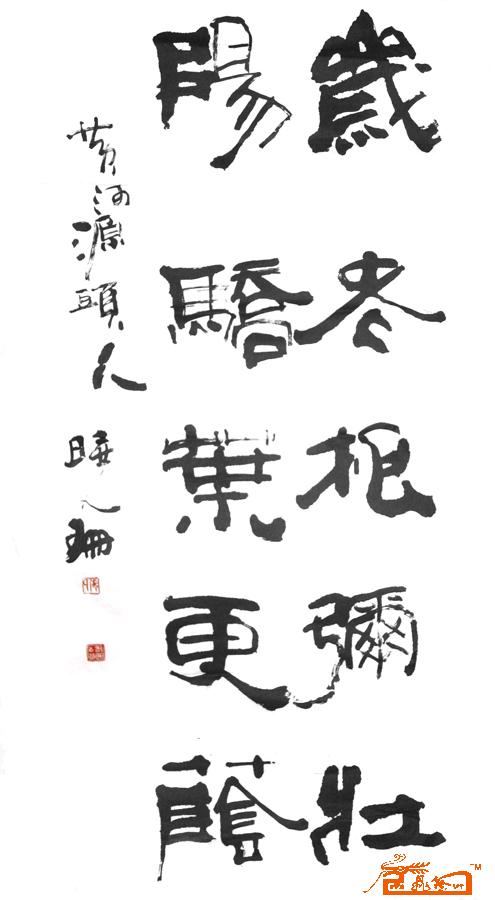 歲老根彌壯
陽驕葉更蔭
黃河源頭人
珊